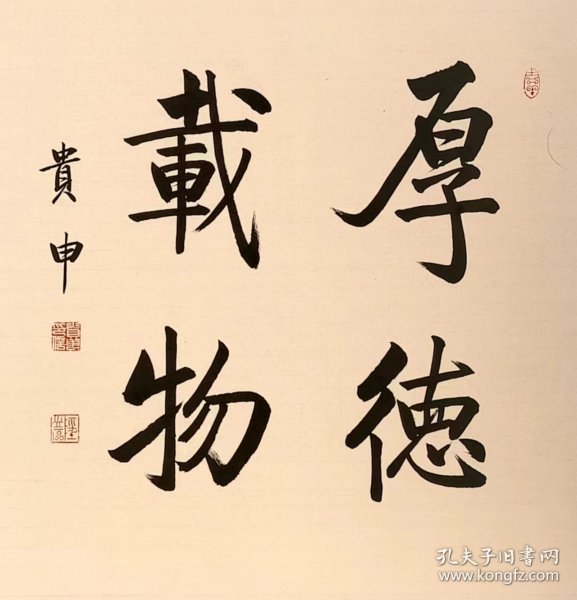 厚德
載物
貴申
孔夫子旧书网
www.kongfz.com